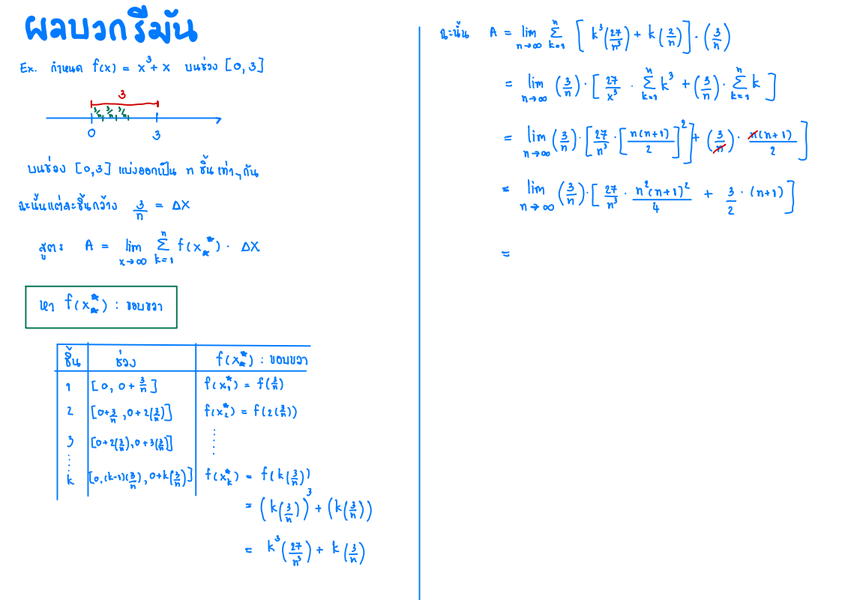 ผลบวกรีมัน
Ex. กำหนด f(x) = x³ + x บนช่วง [0,3]
3
3/n 3/n 3/n
0 3
บนช่วง [0,3] แบ่งออกเป็น n ชิ้นเท่าๆกัน
ฉะนั้นแต่ละชิ้นกว้าง 3/n = ΔX
สูตร A = lim x→∞ Σ k=1 n f(x*ₖ) · ΔX
หา f(x*ₖ) : ขอบขวา
ชิ้น ช่วง f(x*ₖ) : ขอบขวา
1 [0, 0+3/n] f(x*₁) = f(3/n)
2 [0+3/n, 0+2(3/n)] f(x*₂) = f(2(3/n))
3 [0+2(3/n), 0+3(3/n)]
k [0,(k-1)(3/n), 0+k(3/n)] f(x*ₖ) = f(k(3/n))
= (k(3/n))³ + (k(3/n))
= k³(27/n³) + k(3/n)
ฉะนั้น A = lim n→∞ Σ k=1 n [k³(27/n³) + k(3/n)]·(3/n)
= lim n→∞ (3/n)·[27/x³ · Σ k=1 n k³ + (3/n)·Σ k=1 n k]
= lim n→∞ (3/n)·[27/n³ · [n(n+1)/2]²] + (3/n)· n(n+1)/2]
= lim n→∞ (3/n)·[27/n³ · n²(n+1)²/4 + 3/2 ·(n+1)]
=